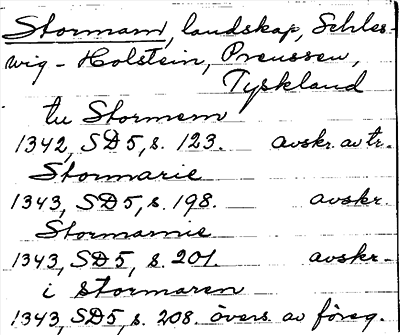 Stormarn, landskap, Schles-
wig - Holstein, Preussen,
Tyskland
tu Stormern
1342, SD5, s. 123. avskr. av tr.
Stormarie
1343, SD5, s. 198. avskr.
Stormarnie
1343, SD5, s. 201. avskr.
i stormaren
1343, SD5, s. 208. övers. av föreg.